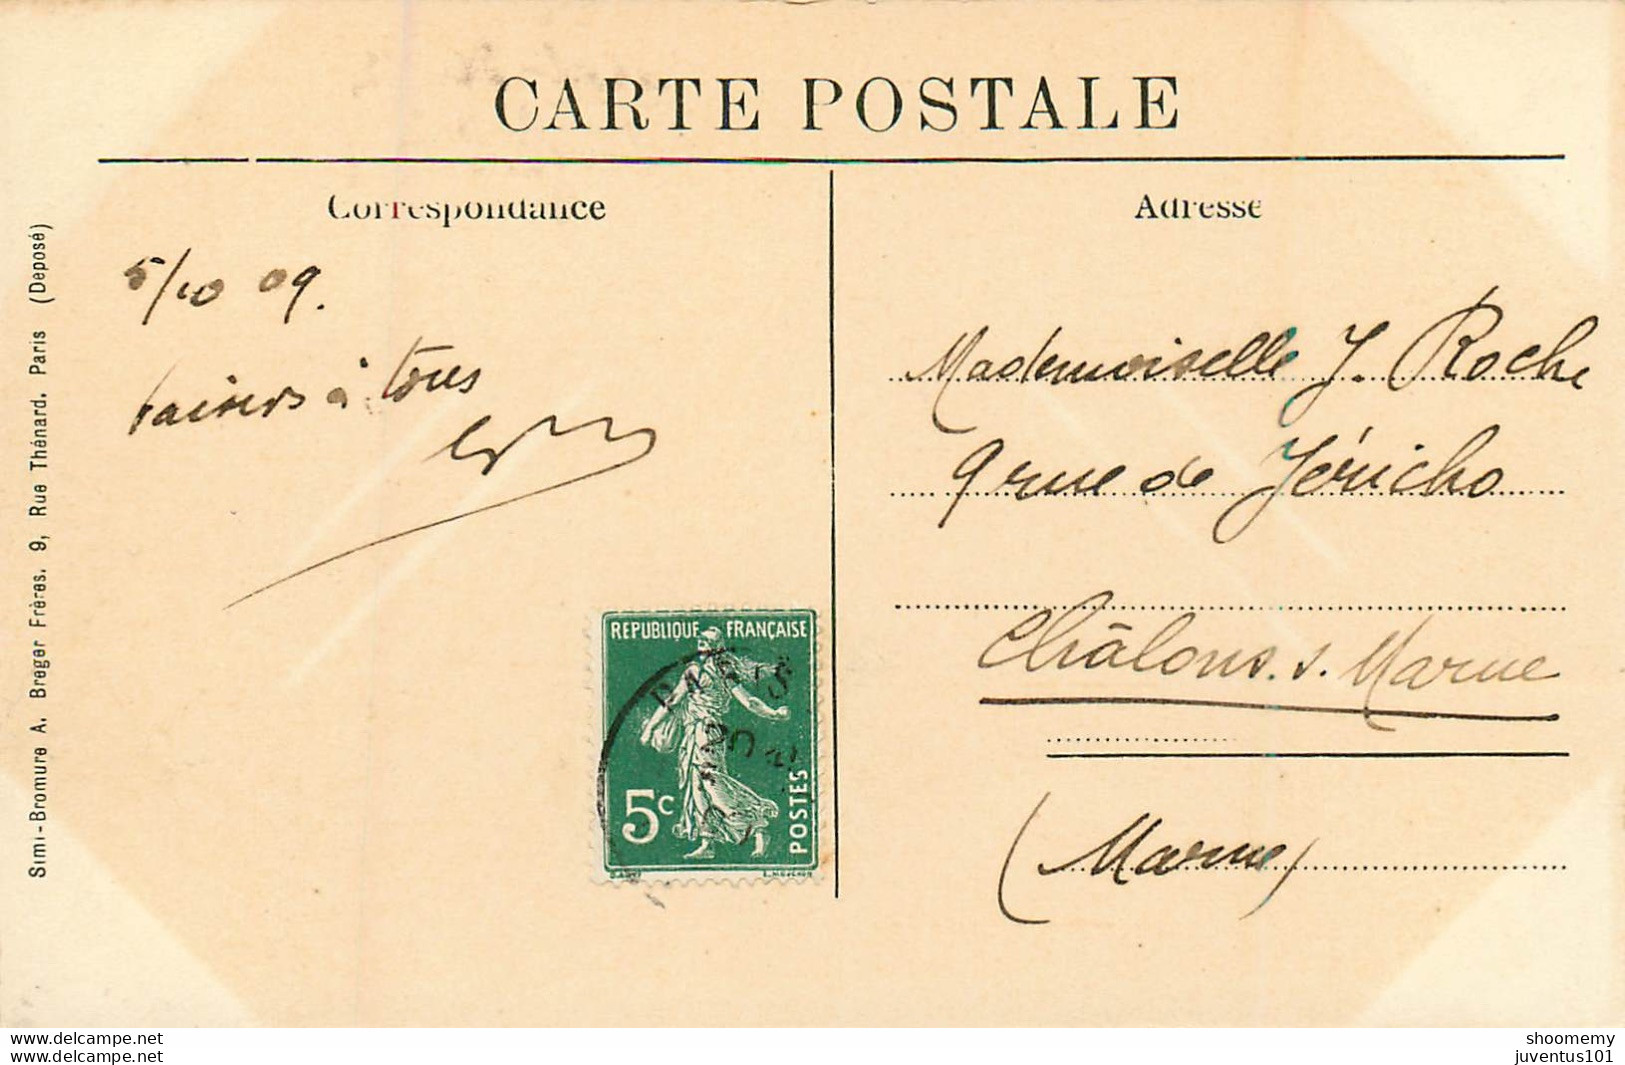 CARTE POSTALE
Correspondance
Adresse
5/10 09.
baisers à tous
Mademoiselle J. Roche
9 rue de Jéricho
Châlons. s. Marne
(Marne)
REPUBLIQUE FRANÇAISE
5c
POSTES
PARIS
Simi-Bromure A. Breger Frères. 9, Rue Thénard. Paris (Deposé)
www.delcampe.net
www.delcampe.net
shoomemy
juventus101